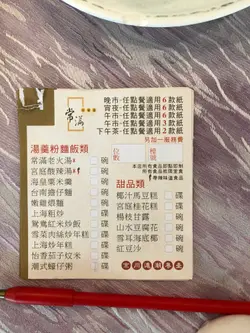 常滿
晚市-任點餐適用 6 款紙
宵夜-任點餐適用 6 款紙
午市-任點餐適用 6 款紙
午市-任點餐適用 3 款紙
下午茶-任點餐適用 2 款紙
另加一服務費
位數
檯號
湯羹粉麵飯類
常滿老火湯 碗
宮庭酸辣湯 碗
海皇粟米羹 碗
台南擔仔麵 碗
嫩雞煨麵 碗
上海粗炒 碟
鴛鴦紅米炒飯 碟
雪菜肉絲炒年糕 碟
上海炒年糕 碟
怡香茄子炆米 碟
潮式蠔仔粥 碗
甜品類
椰汁馬豆糕 碟
宮庭桂花糕 碟
楊枝甘露 碗
山水豆腐花 碗
雪耳海底椰 碗
紅豆沙 碗